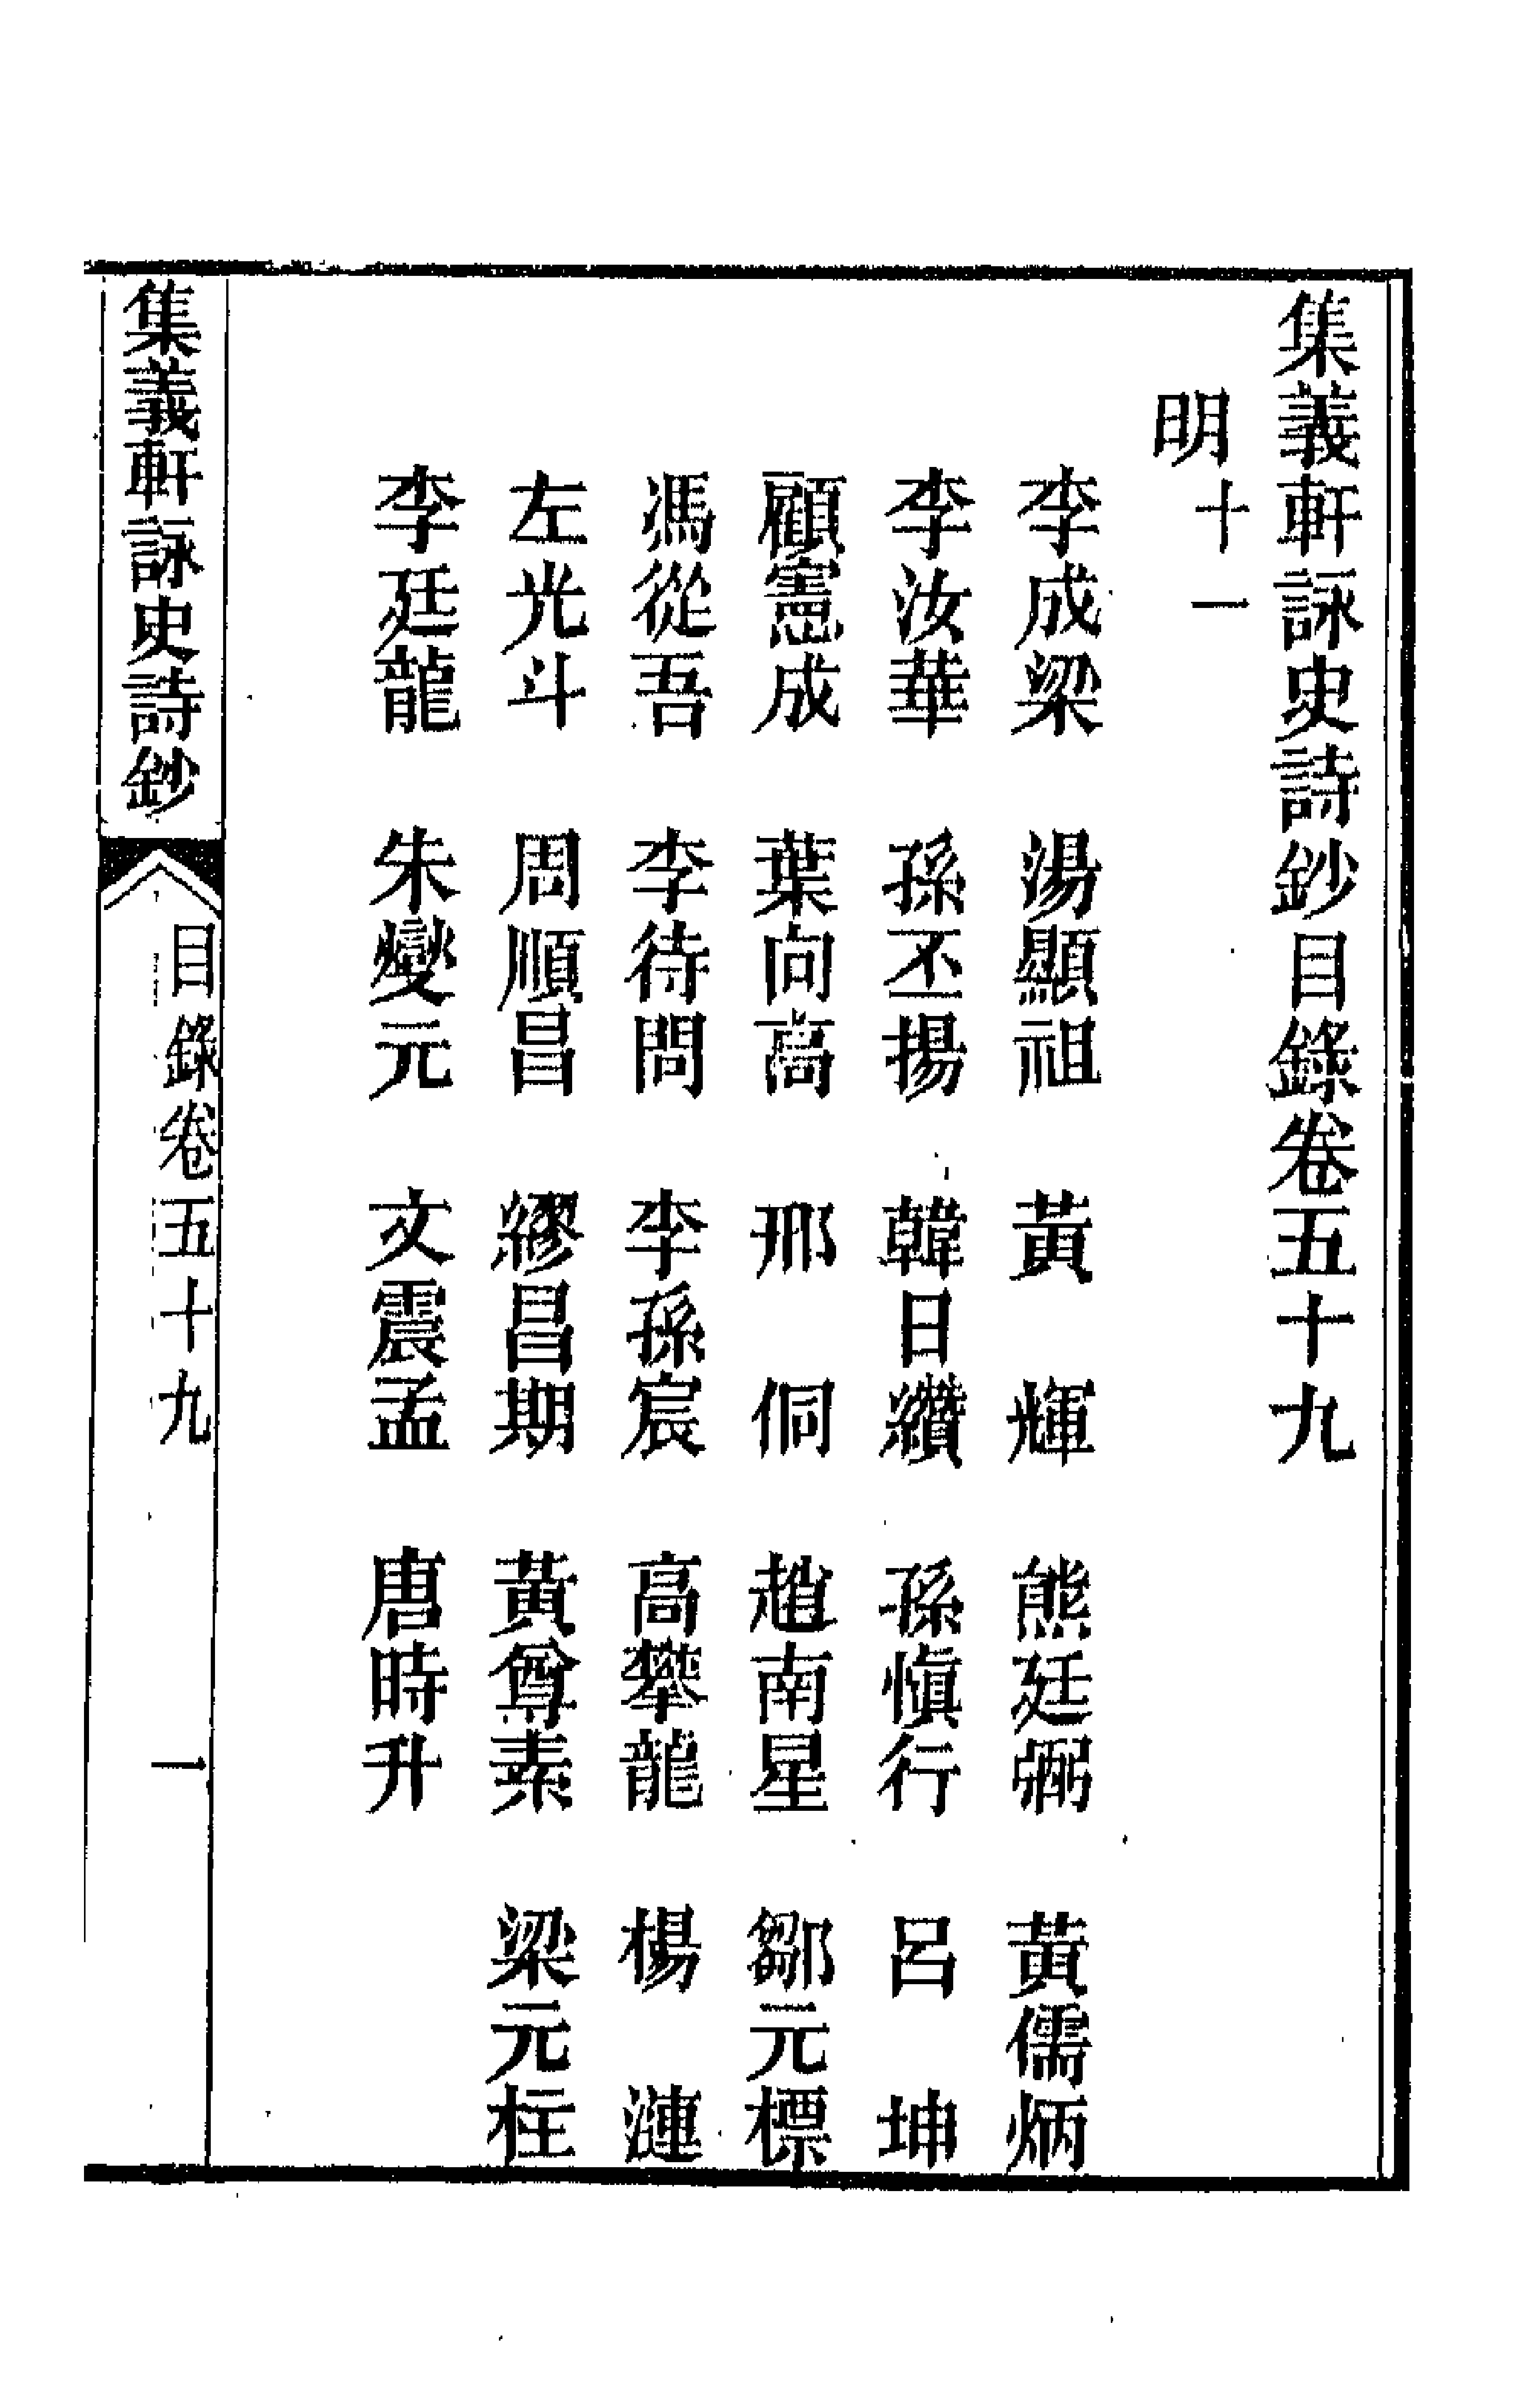 集義軒詠史詩鈔目錄卷五十九
明十一
李成梁　湯顯祖　黃　輝　熊廷弼　黃儒炳
李汝華　孫丕揚　韓日纘　孫愼行　呂　坤
顧憲成　葉向高　邢　侗　趙南星　鄒元標
馮從吾　李待問　李孫宸　高攀龍　楊　漣
左光斗　周順昌　繆昌期　黃尊素　梁元柱
李廷龍　朱燮元　文震孟　唐時升
集義軒詠史詩鈔　目錄卷五十九　一